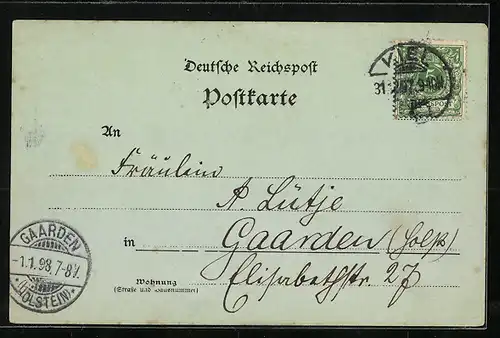 Deutsche Reichspost
Postkarte
KIEL
An
Fräulein
A Lütje
in Gaarden (Holst)
Elisabethstr. 27
Wohnung
(Straße und Hausnummer)
GAARDEN
-1.1.98.7-8V.
(HOLSTEIN)